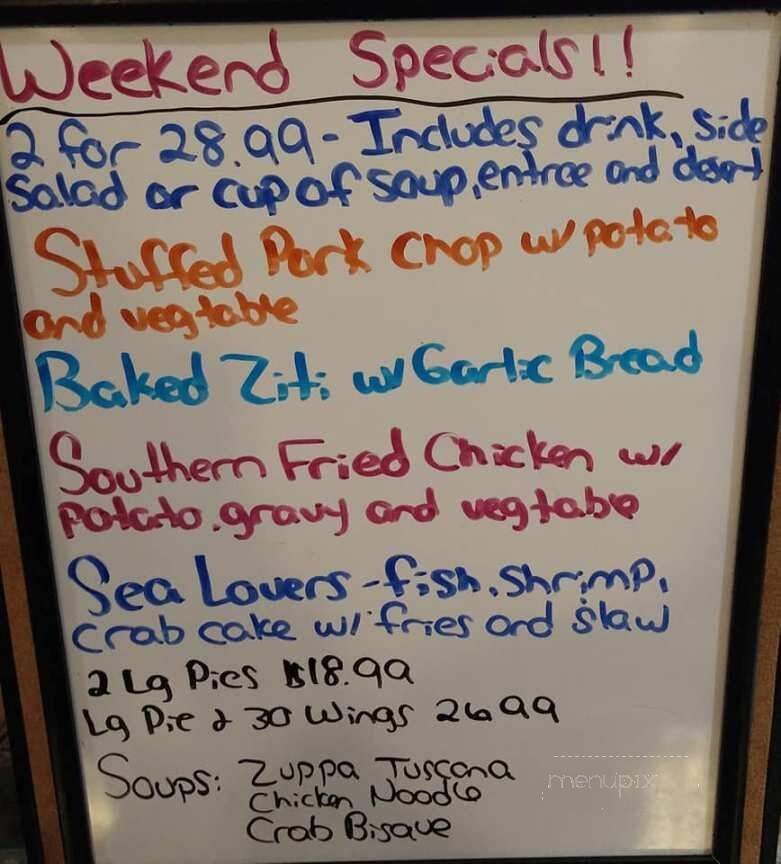 Weekend Specials!!
2 for 28.99 - Includes drink, side
Salad or cup of soup, entree and desert
Stuffed Pork Chop w/ potato
and vegtable
Baked Ziti w/ Garlic Bread
Southern Fried Chicken w/
potato, gravy and vegtable
Sea Lovers - fish, shrimp,
crab cake w/ fries and slaw
2 Lg Pies $18.99
Lg Pie & 30 Wings 26 99
Soups: Zuppa Tuscana
Chicken Noodle
Crab Bisque
menupix